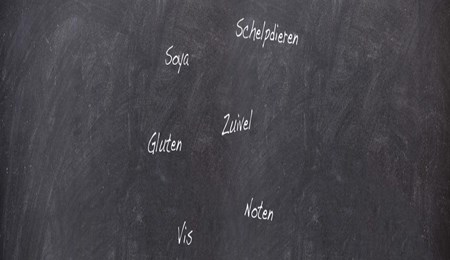 Schelpdieren
Soya
Zuivel
Gluten
Noten
Vis